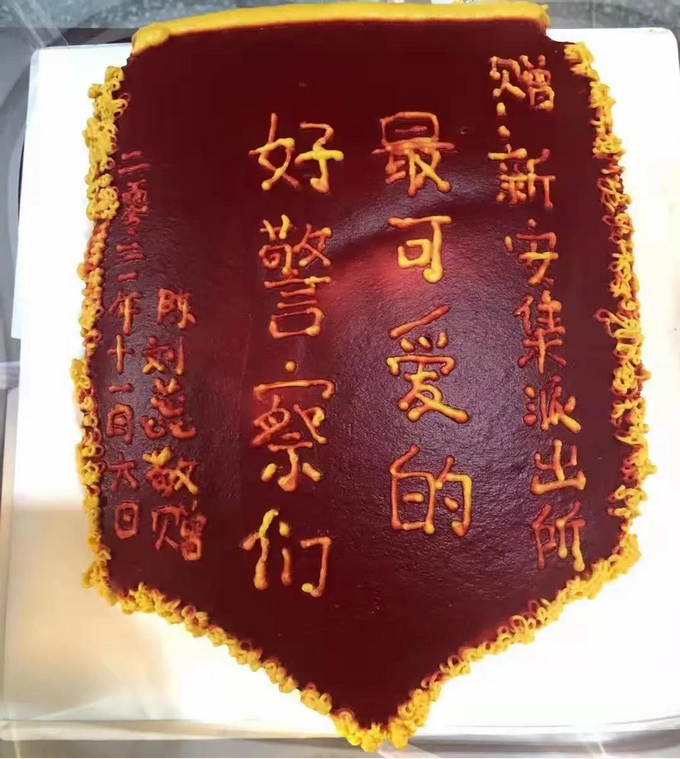 赠:新安集派出所
最可爱的
好警察们
陈刘蕊敬赠
二零二一年十一月六日